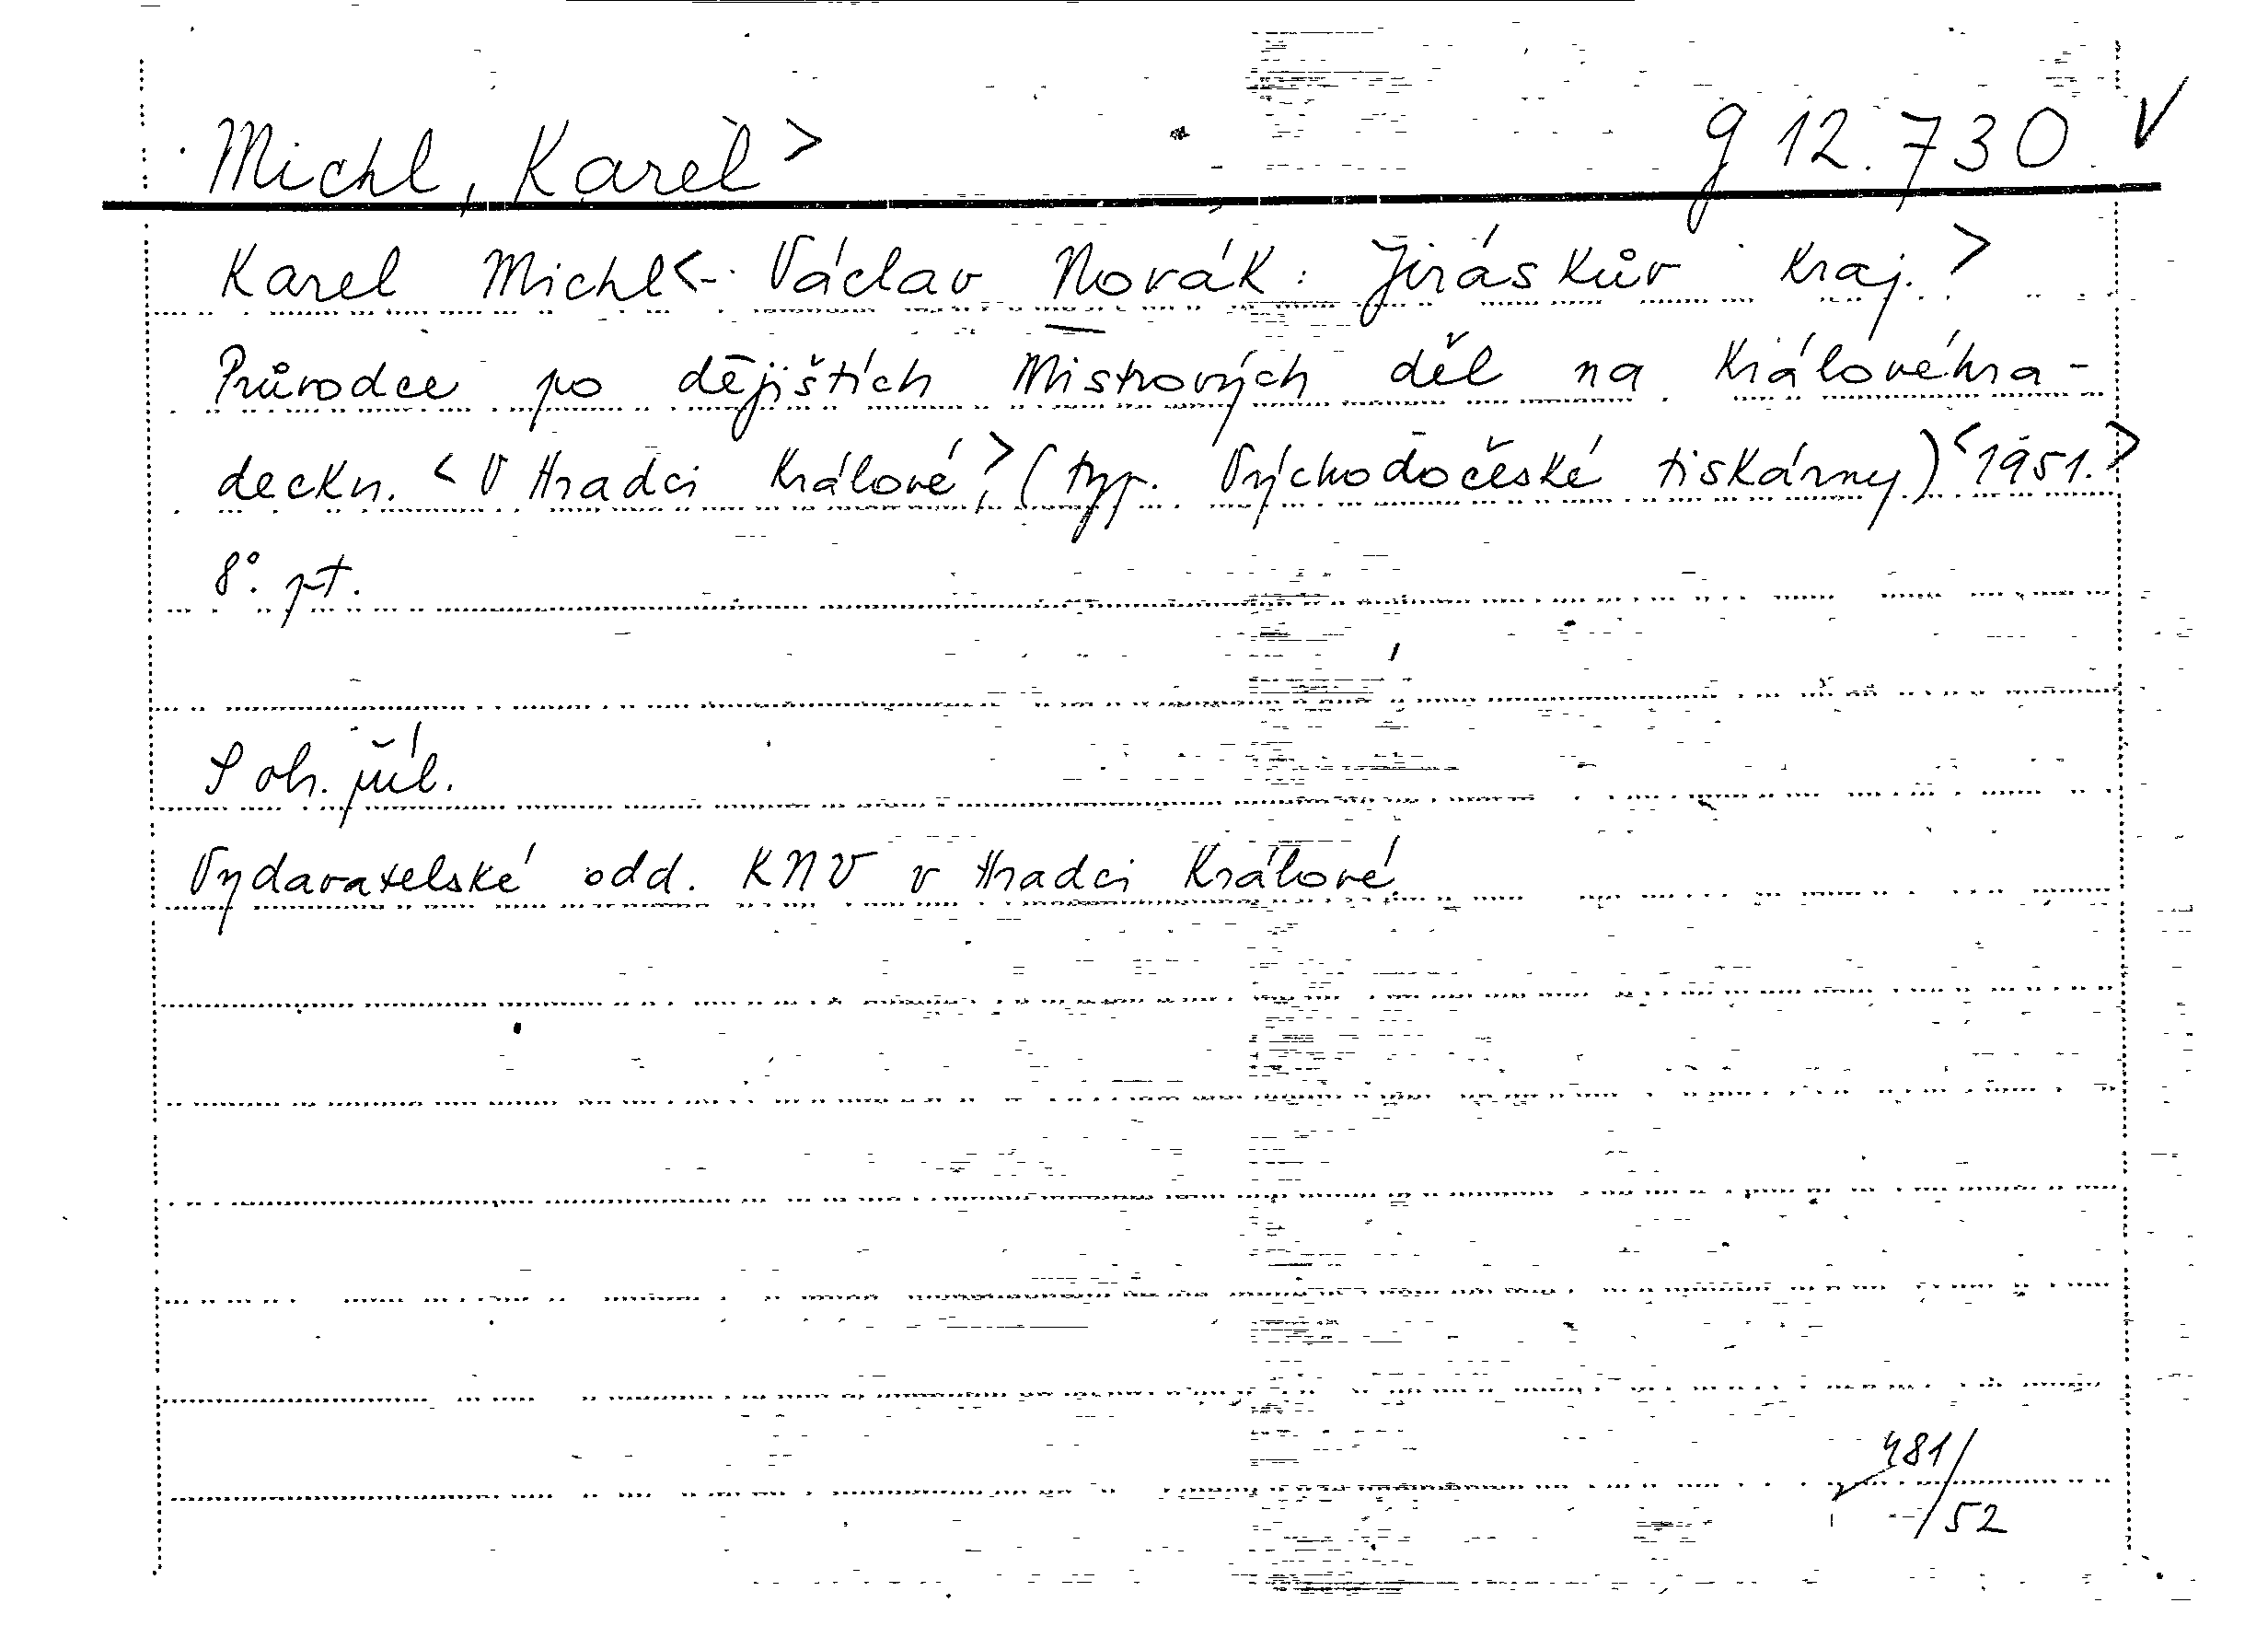 Michl, Karel> g 12.730. V
Karel Michl<-. Václav Novák: Jiráskův kraj.>
Průvodce po dějištích Mistrových děl na Královéhra-
decku. <V Hradci Králové,> (typ. Východočeské tiskárny) <1951.>
8°. pt.
S obr. příl.
Vydavatelské odd. KNV v Hradci Králové.
481/
/52